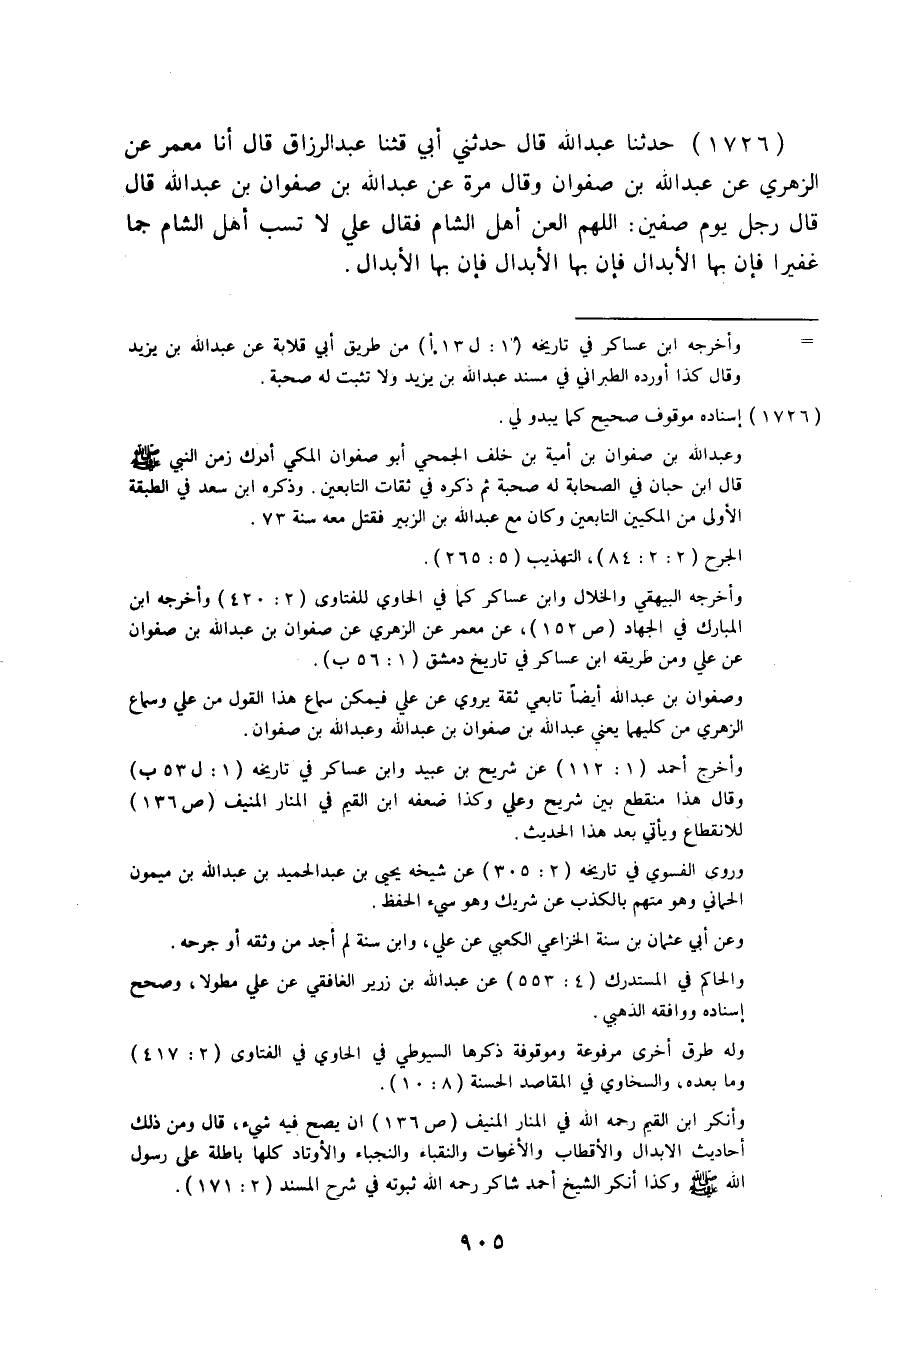 (١٧٢٦) حدثنا عبدالله قال حدثني أبي قثنا عبدالرزاق قال أنا معمر عن
الزهري عن عبدالله بن صفوان وقال مرة عن عبدالله بن صفوان بن عبدالله قال
قال رجل يوم صفين: اللهم العن أهل الشام فقال علي لا تسب أهل الشام جما
غفيرا فإن بها الأبدال فإن بها الأبدال فإن بها الأبدال.
= وأخرجه ابن عساكر في تاريخه (١: ل١٣.أ) من طريق أبي قلابة عن عبدالله بن يزيد
وقال كذا أورده الطبراني في مسند عبدالله بن يزيد ولا تثبت له صحبة.
(١٧٢٦) إسناده موقوف صحيح كما يبدو لي.
وعبدالله بن صفوان بن أمية بن خلف الجمحي أبو صفوان المكي أدرك زمن النبي ﷺ
قال ابن حبان في الصحابة له صحبة ثم ذكره في ثقات التابعين. وذكره ابن سعد في الطبقة
الأولى من المكيين التابعين وكان مع عبدالله بن الزبير فقتل معه سنة ٧٣.
الجرح (٢: ٢: ٨٤)، التهذيب (٥: ٢٦٥).
وأخرجه البيهقي والخلال وابن عساكر كما في الحاوي للفتاوى (٢: ٤٢٠) وأخرجه ابن
المبارك في الجهاد (ص ١٥٢)، عن معمر عن الزهري عن صفوان بن عبدالله بن صفوان
عن علي ومن طريقه ابن عساكر في تاريخ دمشق (١: ٥٦ ب).
وصفوان بن عبدالله أيضاً تابعي ثقة يروي عن علي فيمكن سماع هذا القول من علي وسماع
الزهري من كليهما يعني عبدالله بن صفوان بن عبدالله وعبدالله بن صفوان.
وأخرج أحمد (١: ١١٢) عن شريح بن عبيد وابن عساكر في تاريخه (١: ل٥٣ ب)
وقال هذا منقطع بين شريح وعلي وكذا ضعفه ابن القيم في المنار المنيف (ص١٣٦)
للانقطاع ويأتي بعد هذا الحديث.
وروى الفسوي في تاريخه (٢: ٣٠٥) عن شيخه يحيى بن عبدالحميد بن عبدالله بن ميمون
الحماني وهو متهم بالكذب عن شريك وهو سيء الحفظ.
وعن أبي عثمان بن سنة الخزاعي الكعبي عن علي، وابن سنة لم أجد من وثقه أو جرحه.
والحاكم في المستدرك (٤: ٥٥٣) عن عبدالله بن زرير الغافقي عن علي مطولا، وصحح
إسناده ووافقه الذهبي.
وله طرق أخرى مرفوعة وموقوفة ذكرها السيوطي في الحاوي في الفتاوى (٢: ٤١٧)
وما بعده، والسخاوي في المقاصد الحسنة (٨: ١٠).
وأنكر ابن القيم رحمه الله في المنار المنيف (ص١٣٦) ان يصح فيه شيء، قال ومن ذلك
أحاديث الابدال والأقطاب والأغوات والنقباء والنجباء والأوتاد كلها باطلة على رسول
الله ﷺ وكذا أنكر الشيخ أحمد شاكر رحمه الله ثبوته في شرح المسند (٢: ١٧١).
٩٠٥